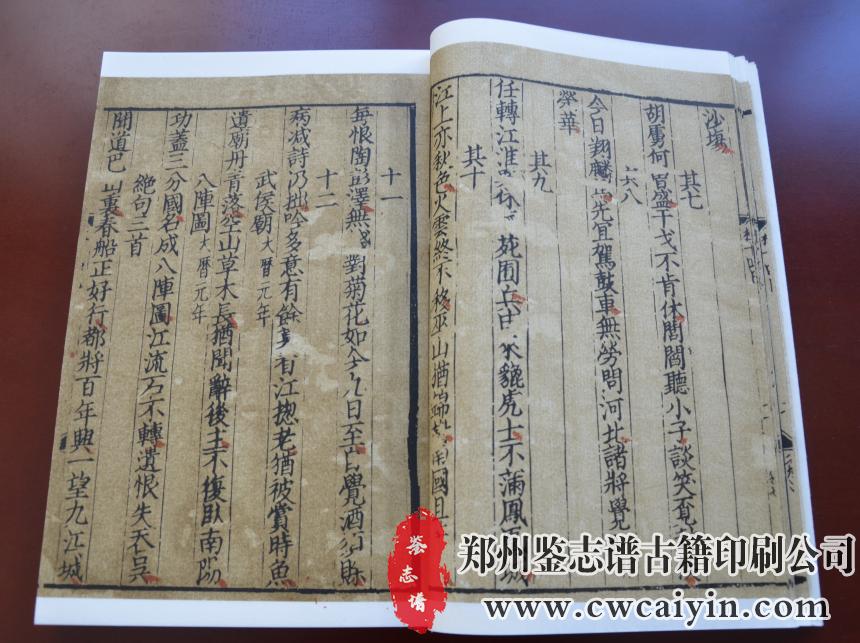 沙塲
其七
胡虜何曾盛干戈不肯休閭閻聽小子談笑覓
其八
今日翔麟先宜駕鼓車無勞問河北諸將覺
榮華
其九
任轉江淮苑囿貔虎士不滿鳳城
其十
江上亦秋色火雲終不移巫山猶南國且
十一
每恨陶彭澤無對菊花如今九日至自覺酒須賖
十二
病减詩仍拙吟多意有餘莫看江揔老猶被賞時魚
武侯廟大曆元年
遺廟丹青落空山草木長猶聞辭後主不復臥南陽
八陣圖大曆元年
功蓋三分國名成八陣圖江流石不轉遺恨失吞吳
絶句三首
聞道巴山裏春船正好行都將百年興一望九江城
鉴志谱
郑州鉴志谱古籍印刷公司
www.cwcaiyin.com